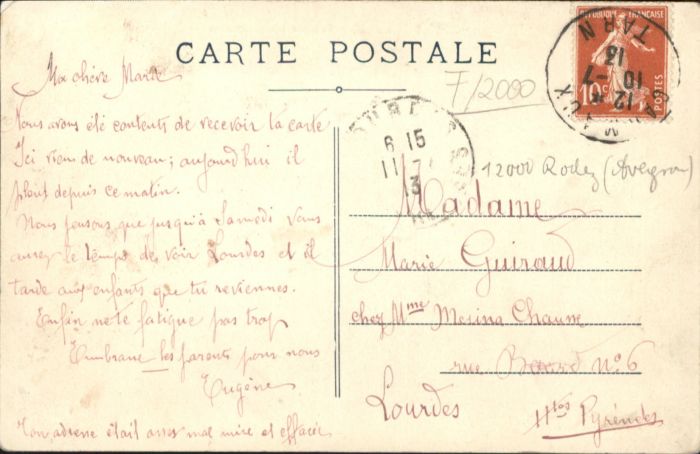 CARTE POSTALE
F/2000
REPUBLIQUE FRANÇAISE
10c
POSTES
CARMAUX
TARN
12 *
10 -7
13
6 15
11 -7
13
12000 Rodez (Aveyron)
Ma chère Marie
Nous avons été contents de recevoir la carte
Ici rien de nouveau; aujourd'hui il
pleut depuis ce matin.
Nous pensons que jusqu'à Samedi vous
aurez le temps de voir Lourdes et il
tarde aux enfants que tu reviennes.
Enfin ne te fatigue pas trop
les parents pour nous
Eugène
Ton adresse était assez mal mise et effacée
Madame
Marie Guiraud
chez Mme Mesina Chaune
rue N°6
Lourdes
Htes Pyrénées